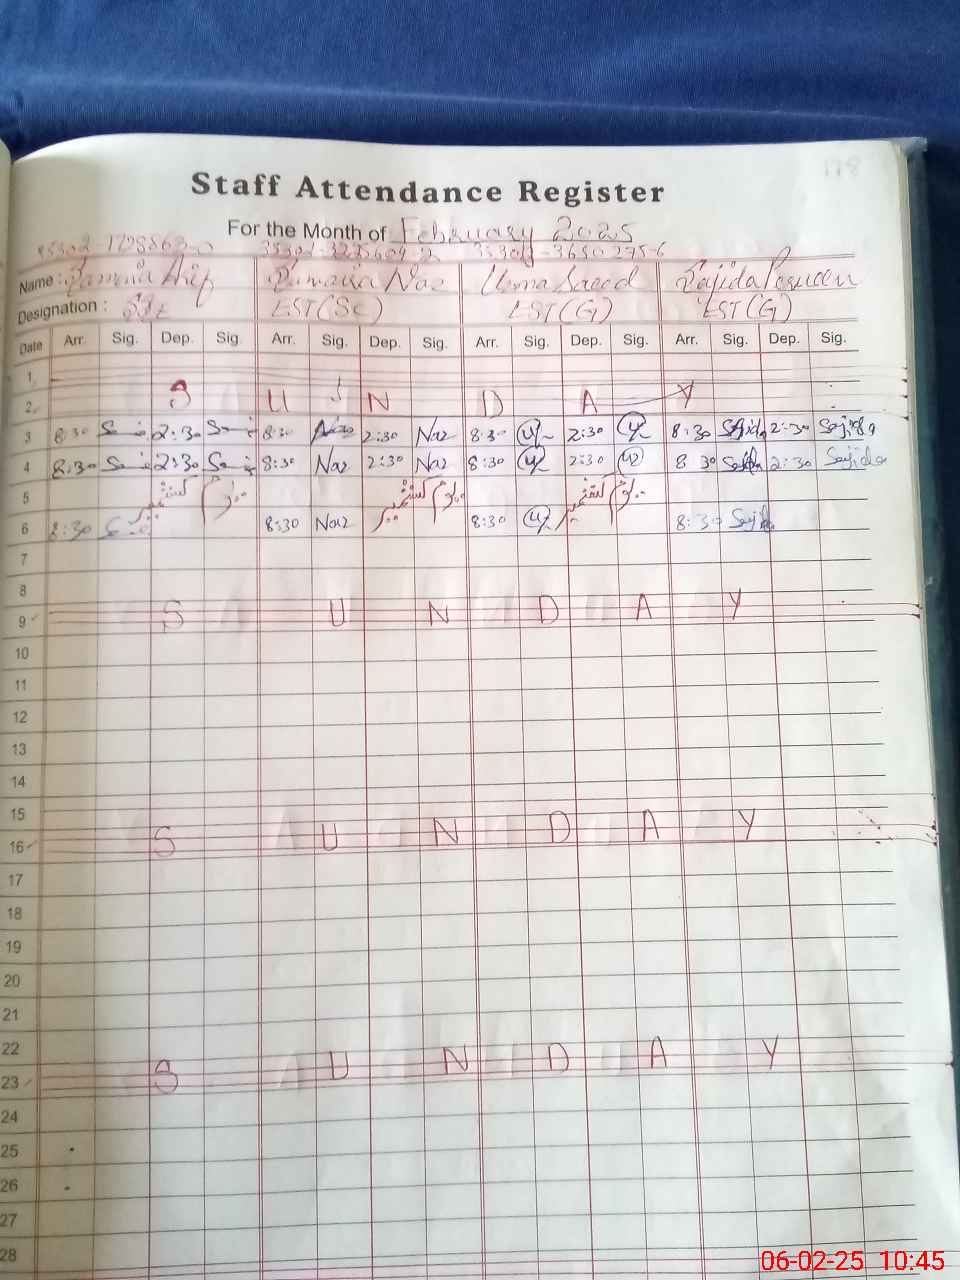 Staff Attendance Register
For the Month of February 2025
Name : Arif Naz Uzma Saeed Sajida Perveen
Designation : EST(Sc) EST(G) EST(G)
Date Arr. Sig. Dep. Sig. Arr. Sig. Dep. Sig. Arr. Sig. Dep. Sig. Arr. Sig. Dep. Sig.
1
2 S U N D A Y
3 8:30 2:30 8:30 Naz 2:30 Naz 8:30 2:30 8:30 Sajida 2:30 Sajida
4 8:30 2:30 8:30 Naz 2:30 Naz 8:30 2:30 8 30 Sajida 2:30 Sajida
5 یوم کشمیر یوم کشمیر یوم کشمیر
6 8:30 8:30 Naz 8:30 8:30 Sajida
7
8
9 S U N D A Y
10
11
12
13
14
15
16 S U N D A Y
17
18
19
20
21
22
23 S U N D A Y
24
25
26
27
28
06-02-25 10:45